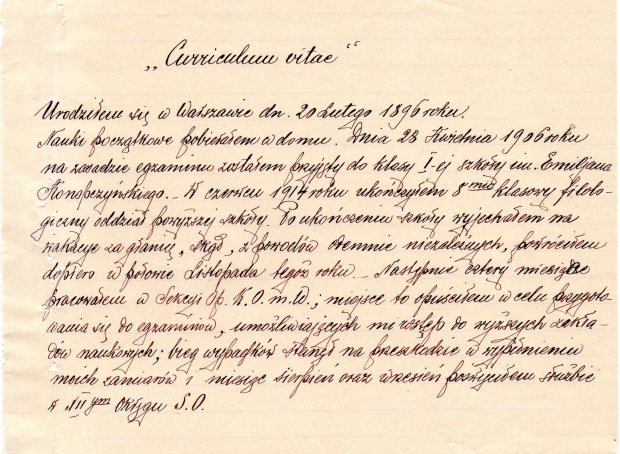 „Curriculum vitae"
Urodziłem się w Warszawie dn. 20 Lutego 1896 roku.
Nauki początkowe pobierałem w domu. Dnia 28 Kwietnia 1906 roku
na zasadzie egzaminu zostałem przyjęty do klasy I-ej szkoły im. Emiljana
Konopczyńskiego. W czerwcu 1914 roku ukończyłem 8mio klasowy filolo-
giczny oddział powyższej szkoły. Po ukończeniu szkoły wyjechałem na
wakacje za granicę, skąd, z powodów odemnie niezależnych, powróciłem
dopiero w połowie Listopada tegoż roku. Następnie cztery miesiące
pracowałem w Sekcyi Op. K.O.m.W.; miejsce to opuściłem w celu przygoto-
wania się do egzaminów, umożliwiających mi wstęp do wyższych zakła-
dów naukowych; bieg wypadków stanął na przeszkodzie w wypełnieniu
moich zamiarów i miesiąc sierpień oraz wrzesień poświęciłem służbie
w XIIym Okręgu S.O.